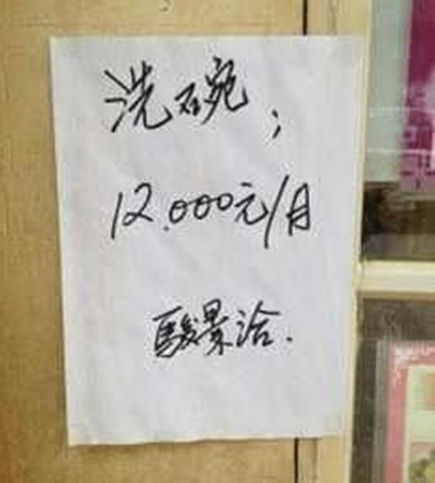 洗碗;
12.000元/月
駿景洽.